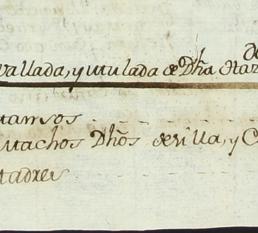 vallada, y mulada de Dha
uansos
uachos Dhos de silla, y C
tadres